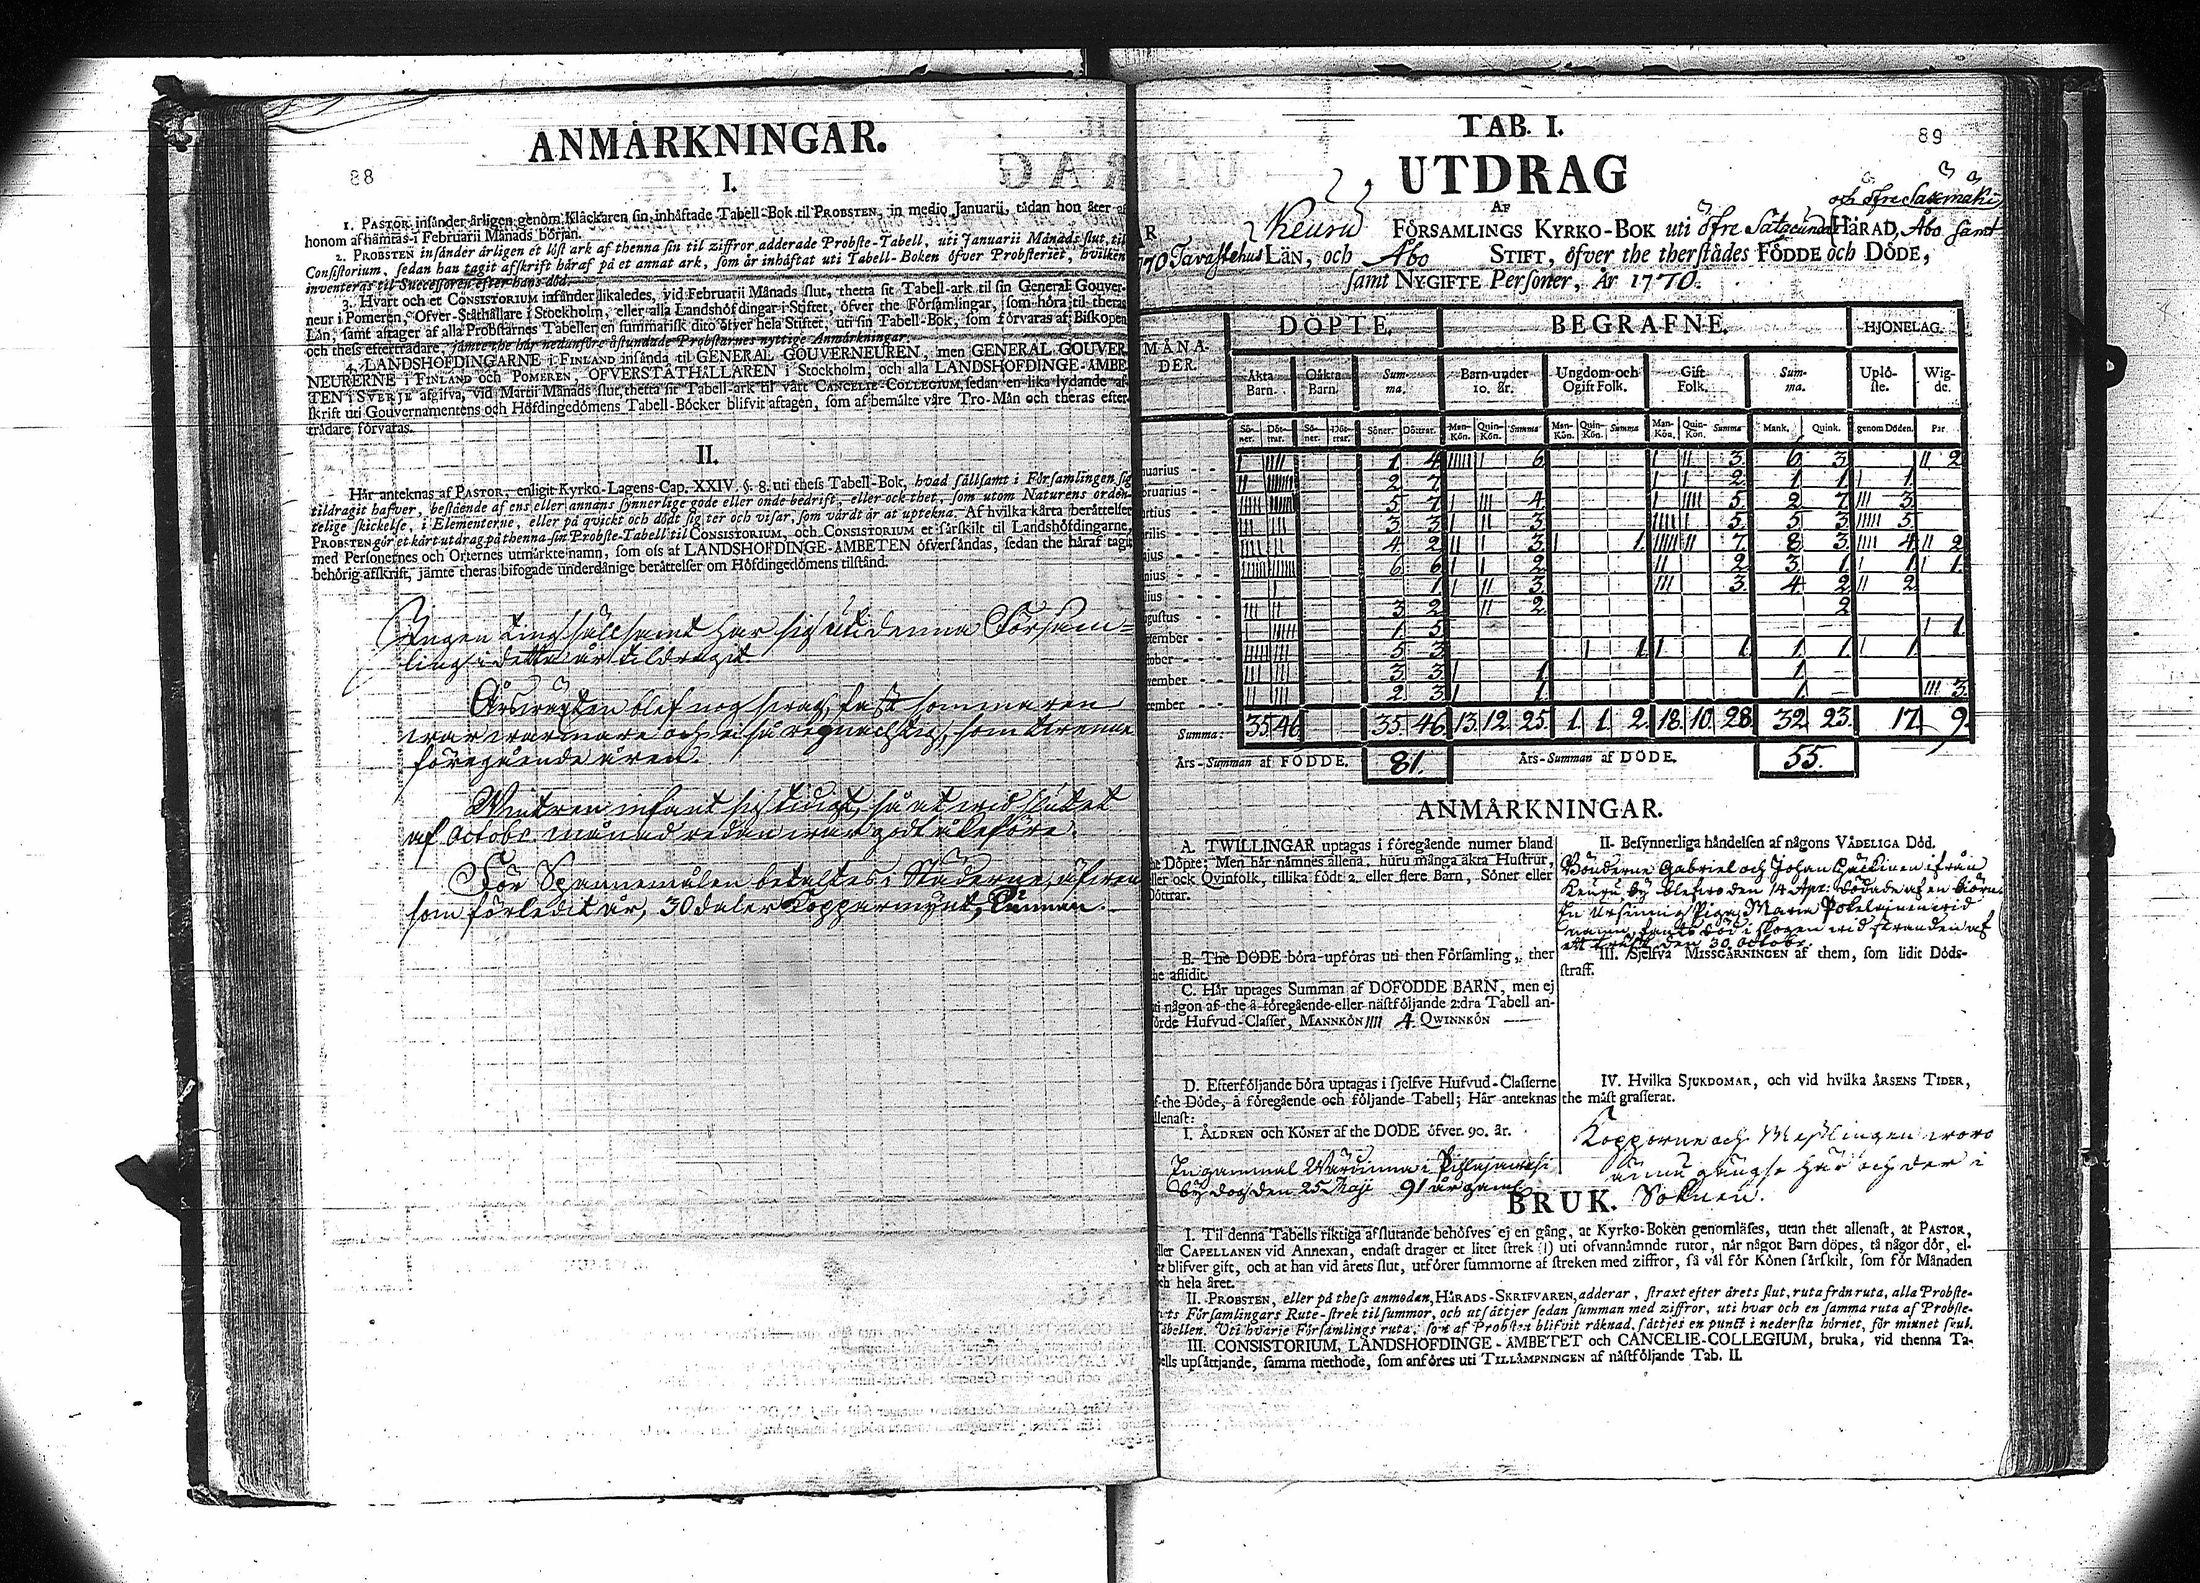 88
ANMÅRKNINGAR.
I.
1. PASTOR insånder årligen genom Klåckaren sin inhåftade Tabell-Bok til PROBSTEN, in medio Januarii, tådan hon åter af
honom afhämtas i Februarii Månads början.
2. PROBSTEN insånder årligen et löst ark af thenna sin til ziffror adderade Probste-Tabell, uti Januarii Månads slut, til
Consistorium, sedan han tagit afskrift håraf på et annat ark, som år inhåftat uti Tabell-Boken öfver Probsteriet, hvilken
inventeras til Successoren efter hans död.
3. Hvart och et CONSISTORIUM insånder likaledes, vid Februarii Månads slut, thetta sit Tabell-ark til sin General Gouver-
neur i Pomeren, Öfver-Ståthållare i Stockholm, eller alla Landshöfdingar i Stiftet, öfver the Församlingar, som höra til theras
Lån, samt aftager af alla Probstarnes Tabeller en summarisk dito öfver hela Stiftet, uti sin Tabell-Bok, som förvaras af Biskopen
och thess efterträdare, jämte the hår nedanföre åstundade Probstarnes nyttige Anmårkningar.
4. LANDSHÖFDINGARNE i FINLAND insånda til GENERAL GOUVERNEUREN, men GENERAL GOUVER-
NEURERNE i FINLAND och POMEREN, ÖFVERSTÅTHÅLLAREN i Stockholm, och alla LANDSHÖFDINGE-ÅMBE-
TEN i SVERJE afgifva, vid Martii Månads slut, thetta sit Tabell-ark til vårt CANCELIE-COLLEGIUM, sedan en lika lydande af-
skrift uti Gouvernamentens och Höfdingedömens Tabell-Böcker blifvit aftagen, som af bemålte våre Tro-Mån och theras efter-
trådare förvaras.
II.
Hår anteknas af PASTOR, enligit Kyrko-Lagens Cap. XXIV. §. 8. uti thess Tabell-Bok, hvad sållsamt i Församlingen sig
tildragit hafver, bestående af ens eller annans synnerlige gode eller onde bedrift, eller ock thet, som utom Naturens orden-
telige skickelse, i Elementerne, eller på qvickt och dödt sig ter och visar, som vårdt år at uptekna. Af hvilka kårta beråttelser
PROBSTEN gör et kårt utdrag på thenna sin Probste-Tabell til CONSISTORIUM, och CONSISTORIUM et sårskilt til Landshöfdingarne,
med Personernes och Orternes utmårkte namn, som oss af LANDSHÖFDINGE-ÅMBETEN öfversåndas, sedan the håraf tagit
behörig afskrift, jämte theras bifogade underdånige beråttelser om Höfdingedömens tilstånd.
Ingen ting sällsamt har sig uti denna Försam=
ling i detta år tildragit.
Årswäxten blef nog swag, fast sommaren
war warmare och ej så regnachtig, som de trenne
föregående åren.
Wintren infant sig tidigt, så at wid slutet
af Octobr. månad redan war godt åkeföre.
För Spannemålen betaltes i Städerne, äfwen
som förledit år, 30 daler Kopparmynt, tunnan.
89
TAB. I.
UTDRAG
AF
och öfre Saxemäki
Keuru FÖRSAMLINGS KYRKO-BOK uti öfre Satacunda HÅRAD, Åbo samt
Tavastehus LÅN, och Åbo STIFT, öfver the therstådes FÖDDE och DÖDE,
samt NYGIFTE Personer, År 1770.
MÅNA-DER. DÖPTE. BEGRAFNE. HJONELAG.
Åkta Barn. Oåkta Barn. Sum-ma. Barn under 10. år. Ungdom och Ogift Folk. Gift Folk. Sum-ma. Uplö-ste. Wig-de.
Sö-ner. Döt-trar. Sö-ner. Döt-trar. Söner. Döttrar. Man-Kön. Quin-Kön. Summa Man-Kön. Quin-Kön. Summa Man-Kön. Quin-Kön. Summa Mank. Quink. genom Döden. Par
nuarius - - 1 4 6 3 6 3 2
bruarius - - 2 7 2 1 1 1
artius - - 5 7 4 5 2 7 3
rilis - - 3 3 3 5 5 3 5
ajus - - 4 2 3 1 7 8 3 4 2
nius - - 6 6 2 2 3 1 1 1
lius - - 1 3 3 4 2 2
gustus - - 3 2 2 2
tember - - 1 5 1
tober - - 5 3 1 1 1 1 1
vember - - 3 3 1 1
cember - - 2 3 1 1 3
Summa: 35 46 35. 46. 13. 12. 25. 1. 1. 2. 18. 10. 28. 32. 23. 17. 9.
Års-Summan af FÖDDE. 81. Års-Summan af DÖDE. 55.
ANMÅRKNINGAR.
A. TWILLINGAR uptagas i föregående numer bland
he Döpte; Men hår nåmnes allena, huru många åkta Hustrur,
ller ock Qvinfolk, tillika födt 2. eller flere Barn, Söner eller
Döttrar.
B. The DÖDE böra upföras uti then Församling, ther
he aflidit.
C. Hår uptages Summan af DÖFÖDDE BARN, men ej
ti någon af the å föregående eller nästföljande 2:dra Tabell an-
förde Hufvud-Classer, MANNKÖN IIII 4. QWINNKÖN —
D. Efterföljande böra uptagas i sjelfve Hufvud-Classerne
f the Döde, å föregående och följande Tabell; Hår anteknas
llenast:
I. ÅLDREN och KÖNET af the DÖDE öfver 90. år.
En gammal Warinna i Pihlajawesi
by dog den 25 Maji 91 år gaml.
II. Besynnerliga håndelsen af någons VÅDELIGA Död.
Bönderne Gabriel och Johan ifrån
Keuru by blefwo den 14 Apr: dödade af en biörn.
En ursinnig Piga, Maria wid
namn, fants död i skogen wid stranden af
ett tråsk den 30 Octobr.
III. Sjelfva MISSGÅRNINGEN af them, som lidit Döds-
straff.
IV. Hvilka SJUKDOMAR, och vid hvilka ÅRSENS TIDER,
the måst grasserat.
Kopporne och Messlingen woro
ännu gängse här och der i
Soknen.
BRUK.
I. Til denna Tabells riktiga afslutande behöfves ej en gång, at Kyrko-Boken genomlåses, utan thet allenast, at PASTOR,
ller CAPELLANEN vid Annexan, endast drager et litet strek (I) uti ofvannåmnde rutor, når något Barn döpes, tå någor dör, el-
er blifver gift, och at han vid årets slut, utförer summorne af streken med ziffror, så vål för Könen sårskilt, som för Månaden
ch hela året.
II. PROBSTEN, eller på thess anmodan, HÅRADS-SKRIFVAREN, adderar, straxt efter årets slut, ruta från ruta, alla Probste-
ts Församlingars Rute-strek til summor, och utsåttjer sedan summan med ziffror, uti hvar och en samma ruta af Probste-
abellen. Uti hvarje Församlings ruta, som af Probsten blifvit råknad, såttjes en punct i nedersta hörnet, för minnet skul.
III. CONSISTORIUM, LANDSHÖFDINGE-ÅMBETET och CANCELIE-COLLEGIUM, bruka, vid thenna Ta-
ells upsåttjande, samma methode, som anföres uti TILLÅMPNINGEN af nåstföljande Tab. II.